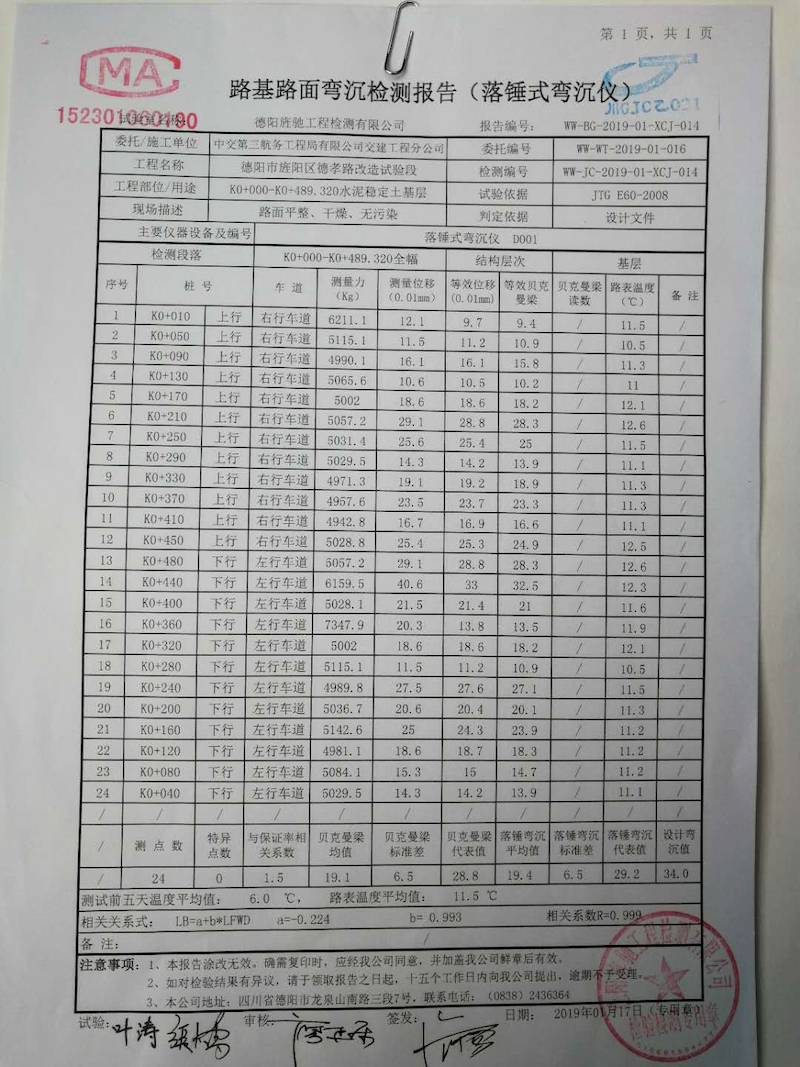 第 1 页, 共 1 页
MA
152301060490
路基路面弯沉检测报告（落锤式弯沉仪）
德阳旌驰工程检测有限公司 报告编号: WW-BG-2019-01-XCJ-014
委托/施工单位 中交第三航务工程局有限公司交建工程分公司 委托编号 WW-WT-2019-01-016
工程名称 德阳市旌阳区德孝路改造试验段 检测编号 WW-JC-2019-01-XCJ-014
工程部位/用途 K0+000-K0+489.320水泥稳定土基层 试验依据 JTG E60-2008
现场描述 路面平整、干燥、无污染 判定依据 设计文件
主要仪器设备及编号 落锤式弯沉仪 D001
检测段落 K0+000-K0+489.320全幅 结构层次 基层
序号 桩 号 车 道 测量力（Kg） 测量位移（0.01mm） 等效位移（0.01mm） 等效贝克曼梁 贝克曼梁读数 路表温度（℃） 备 注
1 K0+010 上行 右行车道 6211.1 12.1 9.7 9.4 / 11.5 /
2 K0+050 上行 右行车道 5115.1 11.5 11.2 10.9 / 10.5 /
3 K0+090 上行 右行车道 4990.1 16.1 16.1 15.8 / 11.3 /
4 K0+130 上行 右行车道 5065.6 10.6 10.5 10.2 / 11 /
5 K0+170 上行 右行车道 5002 18.6 18.6 18.2 / 12.1 /
6 K0+210 上行 右行车道 5057.2 29.1 28.8 28.3 / 12.6 /
7 K0+250 上行 右行车道 5031.4 25.6 25.4 25 / 11.5 /
8 K0+290 上行 右行车道 5029.5 14.3 14.2 13.9 / 11.1 /
9 K0+330 上行 右行车道 4971.3 19.1 19.2 18.9 / 11.3 /
10 K0+370 上行 右行车道 4957.6 23.5 23.7 23.3 / 11.3 /
11 K0+410 上行 右行车道 4942.8 16.7 16.9 16.6 / 11.1 /
12 K0+450 上行 右行车道 5028.8 25.4 25.3 24.9 / 12.5 /
13 K0+480 下行 左行车道 5057.2 29.1 28.8 28.3 / 12.6 /
14 K0+440 下行 左行车道 6159.5 40.6 33 32.5 / 12.3 /
15 K0+400 下行 左行车道 5028.1 21.5 21.4 21 / 11.6 /
16 K0+360 下行 左行车道 7347.9 20.3 13.8 13.5 / 11.9 /
17 K0+320 下行 左行车道 5002 18.6 18.6 18.2 / 12.1 /
18 K0+280 下行 左行车道 5115.1 11.5 11.2 10.9 / 10.5 /
19 K0+240 下行 左行车道 4989.8 27.5 27.6 27.1 / 11.5 /
20 K0+200 下行 左行车道 5036.7 20.6 20.4 20.1 / 11.3 /
21 K0+160 下行 左行车道 5142.6 25 24.3 23.9 / 11.2 /
22 K0+120 下行 左行车道 4981.1 18.6 18.7 18.3 / 11.2 /
23 K0+080 下行 左行车道 5084.1 15.3 15 14.7 / 11.2 /
24 K0+040 下行 左行车道 5029.5 14.3 14.2 13.9 / 11.1 /
/ / / / / / / / / / /
/ 测 点 数 特异点数 与保证率相关系数 贝克曼梁均值 贝克曼梁标准差 贝克曼梁代表值 落锤弯沉平均值 落锤弯沉标准差 落锤弯沉代表值 设计弯沉值
/ 24 0 1.5 19.1 6.5 28.8 19.4 6.5 29.2 34.0
测试前五天温度平均值: 6.0 ℃, 路表温度平均值: 11.5 ℃
相关关系式: LB=a+b*LFWD a=-0.224 b= 0.993 相关系数R=0.999
备 注: /
注意事项: 1、本报告涂改无效。确需复印时，应经我公司同意，并加盖我公司鲜章后有效。
2、如对检验结果有异议，请于领取报告之日起，十五个工作日内向我公司提出，逾期不予受理。
3、本公司地址: 四川省德阳市龙泉山南路三段7号，联系电话: （0838）2436364
试验: 叶涛 审核: 签发: 日期: 2019年01月17日（专用章）